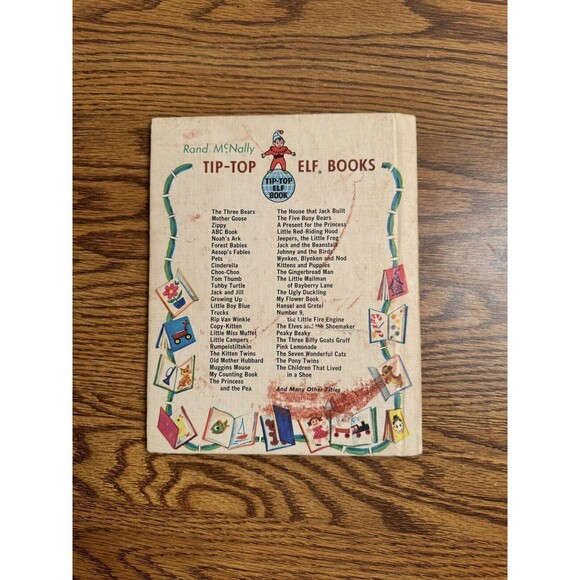 Rand McNally
TIP-TOP ELF® BOOKS
TIP-TOP
ELF
BOOK
The Three Bears
Mother Goose
Zippy
ABC Book
Noah's Ark
Forest Babies
Aesop's Fables
Pets
Cinderella
Choo-Choo
Tom Thumb
Tubby Turtle
Jack and Jill
Growing Up
Little Boy Blue
Trucks
Rip Van Winkle
Copy-Kitten
Little Miss Muffet
Little Campers
Rumpelstiltskin
The Kitten Twins
Old Mother Hubbard
Muggins Mouse
My Counting Book
The Princess
and the Pea
The House that Jack Built
The Five Busy Bears
A Present for the Princess
Little Red-Riding Hood
Jeepers, the Little Frog
Jack and the Beanstalk
Johnny and the Birds
Wynken, Blynken and Nod
Kittens and Puppies
The Gingerbread Man
The Little Mailman
of Bayberry Lane
The Ugly Duckling
My Flower Book
Hansel and Gretel
Number 9,
the Little Fire Engine
The Elves and the Shoemaker
Peaky Beaky
The Three Billy Goats Gruff
Pink Lemonade
The Seven Wonderful Cats
The Pony Twins
The Children That Lived
in a Shoe
And Many Other Titles